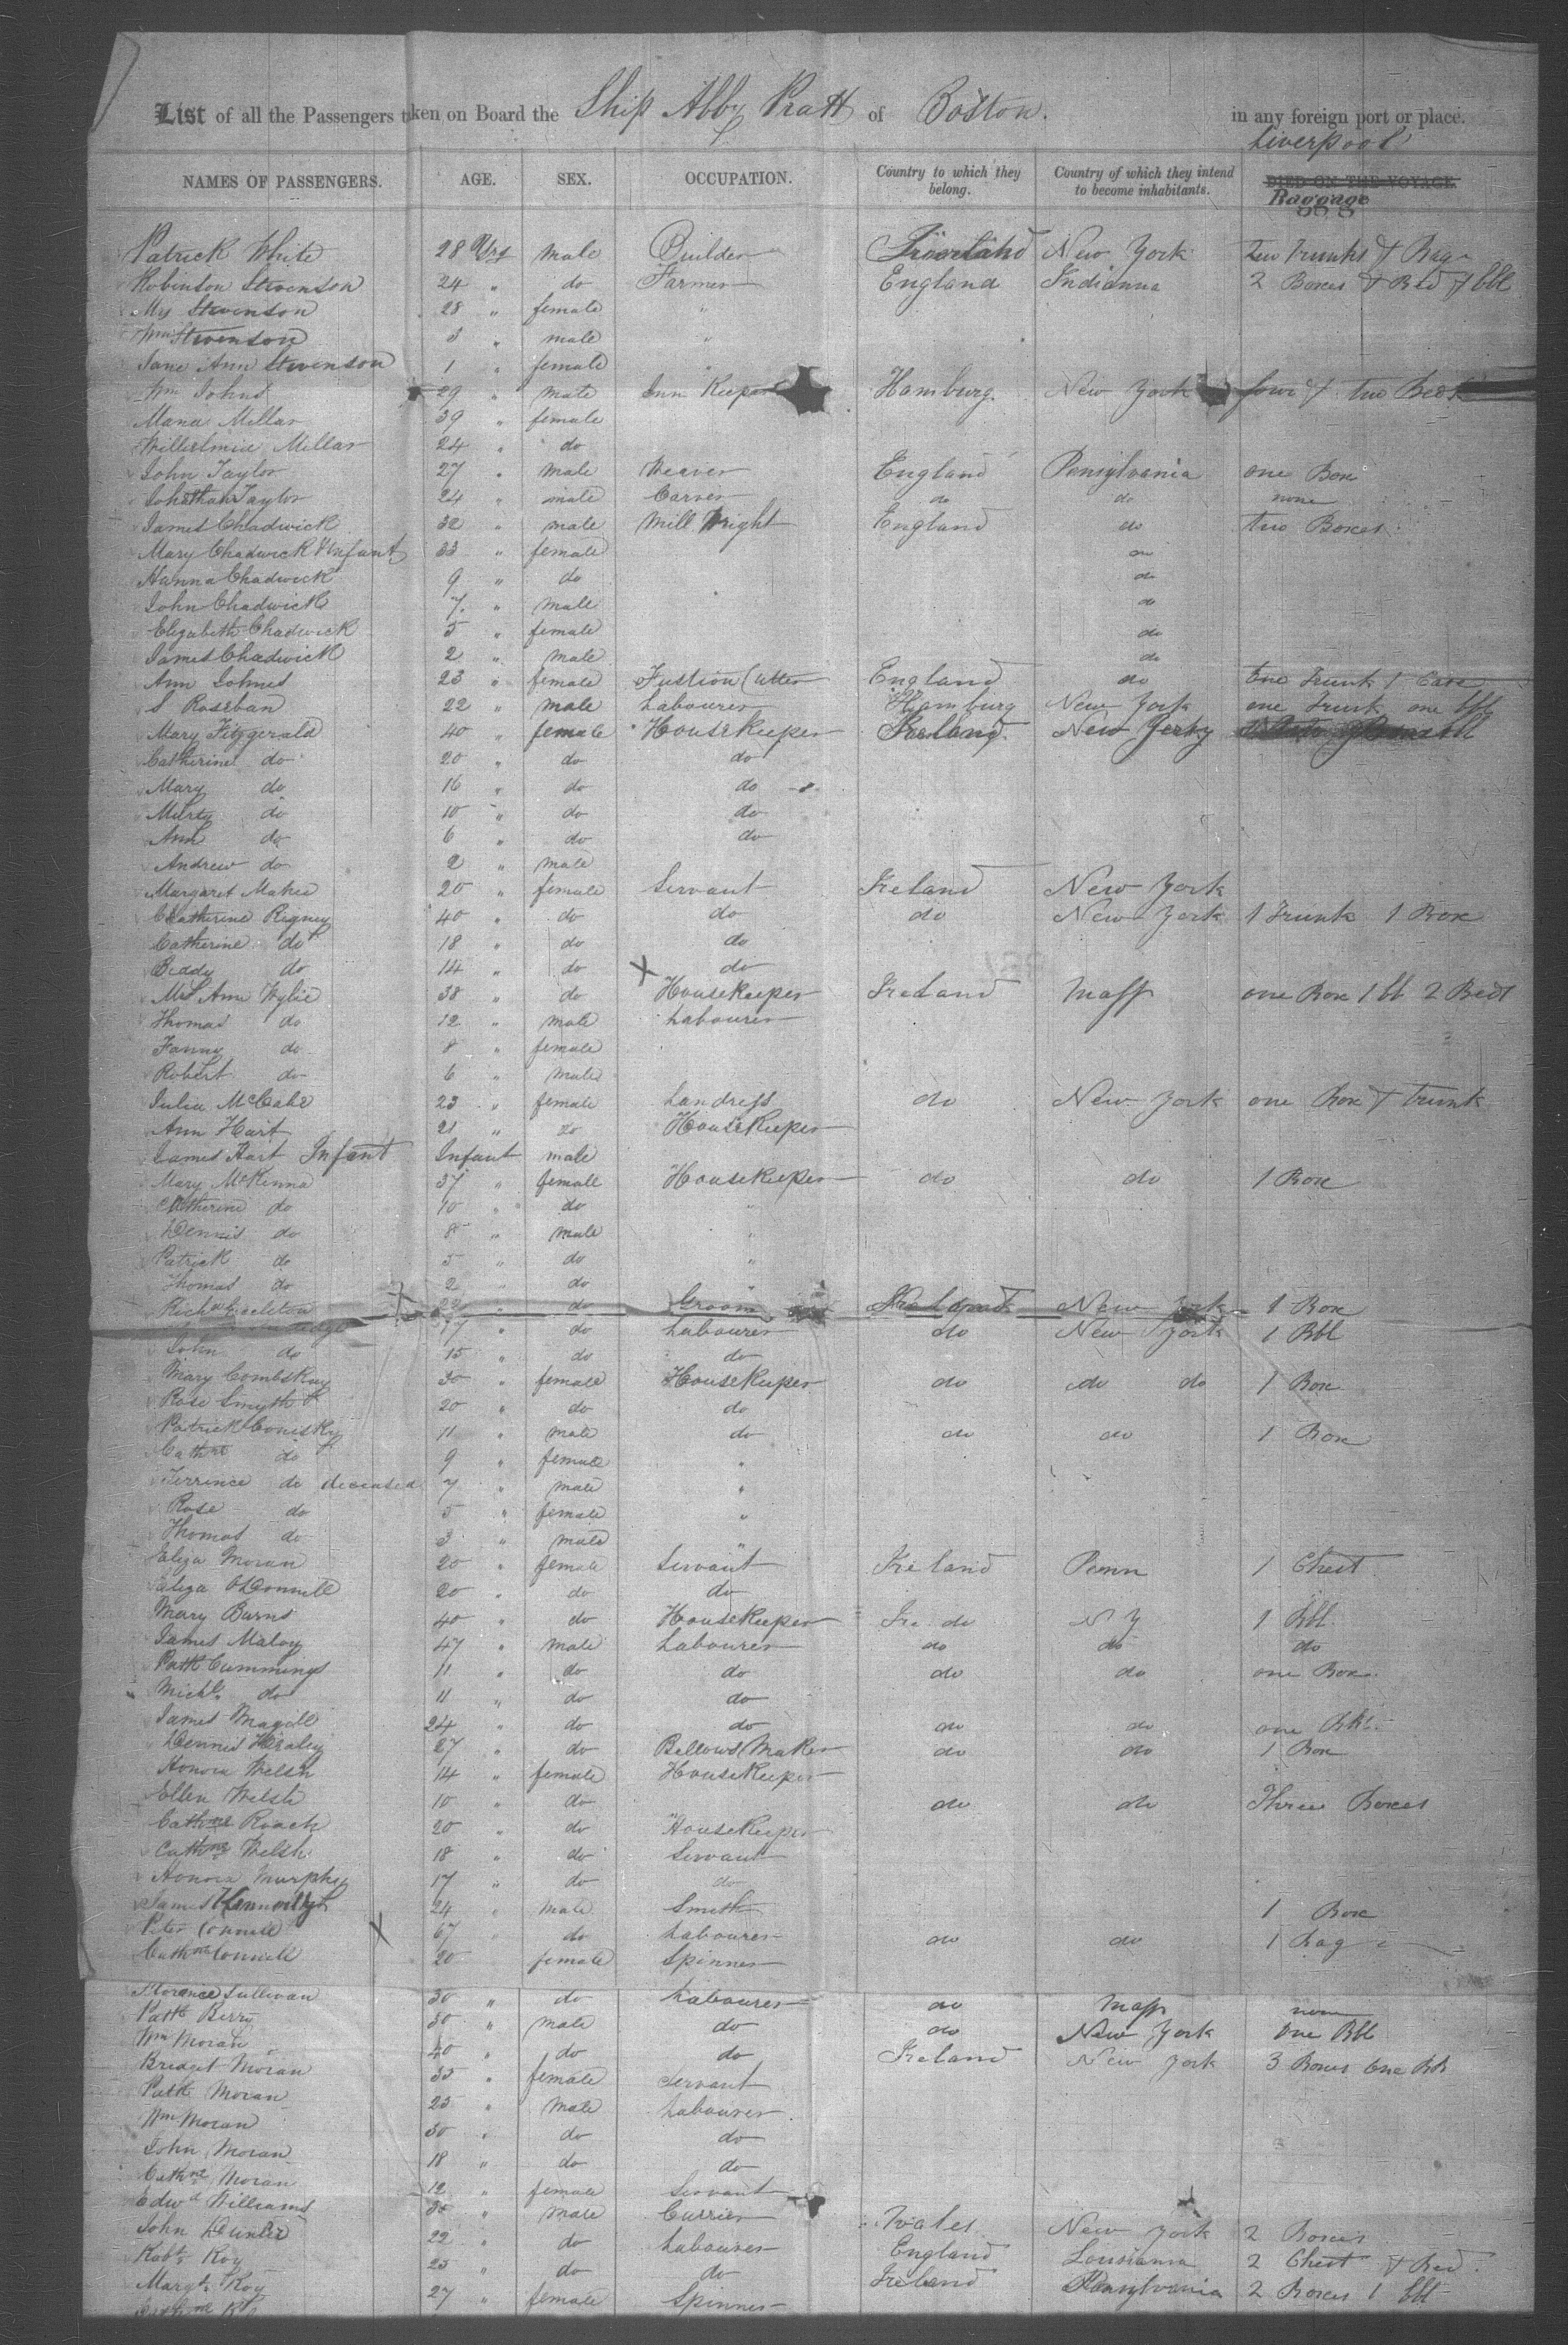 List of all the Passengers taken on Board the Ship Abby Pratt of Boston. in any foreign port or place.
Liverpool
NAMES OF PASSENGERS. AGE. SEX. OCCUPATION. Country to which they belong. Country of which they intend to become inhabitants. DIED ON THE VOYAGE.
Baggage
Patrick White 28 Yrs male Builder New York Two Trunks & Bag
Robinson Stevenson 24 " do Farmer England Indianna 2 Boxes & Bed & bbl
Mrs Stevenson 28 " female "
Wm Stevenson 3 " male "
Jane Ann Stevenson 1 " female
Wm Johns 29 " male Inn Keeper Hamburg. New York four & two Beds
Maria Millar 39 " female
Willielmia Millar 24 " do
John Taylor 27 " male Weaver England Pensylvania one Box
Johnathan Taylor 24 " male Carver do do none
James Chadwick 32 " male Mill Wright England do two Boxes
Mary Chadwick & Infant 33 " female do
Hanna Chadwick 9 " do do
John Chadwick 7 " male do
Elizabeth Chadwick 5 " female do
James Chadwick 2 " male do
Ann Johnes 23 " female Fustion Cutter England do One Trunk 1 Case
S Roseban 22 " male Labourer Hamburg New York one Trunk one bbl
Mary Fitzgerald 40 " female Housekeeper Ireland. New Jersy
Catherine do 20 " do do
Mary do 16 " do do
do 10 " do do
Ann do 6 " do do
Andrew do 2 " male
Margaret Maher 20 " female Servant Ireland New York
Chatherine Rigney 40 " do do do New York 1 Trunk 1 Box
Catherine do 18 " do do
Biddy do 14 " do X do
Mrs Ann Wylie 38 " do Housekeeper Ireland Mass one Box 1 bl 2 Beds
Thomas do 12 " male Labourer
Fanny do 8 " female
Robert do 6 " male
Julia McCabe 23 " female Landress do New York one Box & trunk
Ann Hart 21 " do Housekeeper
James Hart Infant Infant male
Mary McKenna 37 " female Housekeeper do do 1 Box
Chatherine do 10 " do "
Dennis do 8 " male "
Patrick do 5 " do "
Thomas do 2 " do "
Richd X 22 " do Groom New York 1 Box
17 " do Labourer do New York 1 Bbl
John do 15 " do do
Mary Combskey 30 " female Housekeeper do do do 1 Box
Rose Smyth 20 " do do
Patrick Conisky 11 " male do do do 1 Box
Cathne do 9 " female "
Terrince do deceased 7 " male "
Rose do 5 " female "
Thomas do 3 " male "
Eliza Moran 20 " female Servant Ireland Penn 1 Chest
Eliza O'Donnell 20 " do do
Mary Burns 40 " do Housekeeper Ire. do N Y 1 Bbl.
James Maloy 47 " male Labourer do do do
Patk Cummings 11 " do do do do one Box
Michl. do 11 " do do
James Magill 24 " do do do do one Bbl.
Dennis 27 " do Bellows Maker do do 1 Box
Honora Welsh 14 " female Housekeeper
Ellen Welsh 10 " do do do Three Boxes
Cathne Roach 20 " do Housekeeper
Cathne Welsh 18 " do Servant
Honora Murphy 17 " do do
James 24 " male Smith 1 Box
Peter Connell X 67 " do Labourer do do 1 Bag
Cathne Connell 20 female Spinner
Florence Sullivan 30 " do Labourer do Mass none
Patk Berry 30 " male do do New York One Bbl
Wm Moran 40 " do do Ireland New York 3 Boxes One Bbl
Bridget Moran 35 " female Servant
Patk Moran 25 " male Labourer
Wm Moran 30 " do do
John Moran 18 " do do
Cathne Moran 12 " female Servant
Edwd Williams 35 " male Currier Wales New York 2 Boxes
John 22 " do Labourer England Lousiania 2 Chest & Bed
Robt. Koy 25 " do do Ireland Pensylvania 2 Boxes 1 bbl
Margt. Koy 27 " female Spinner